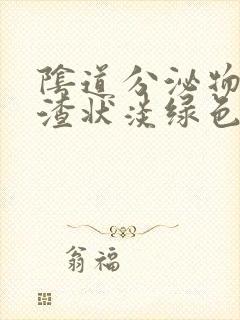 陰道分泌物
渣状淡绿色
翁福